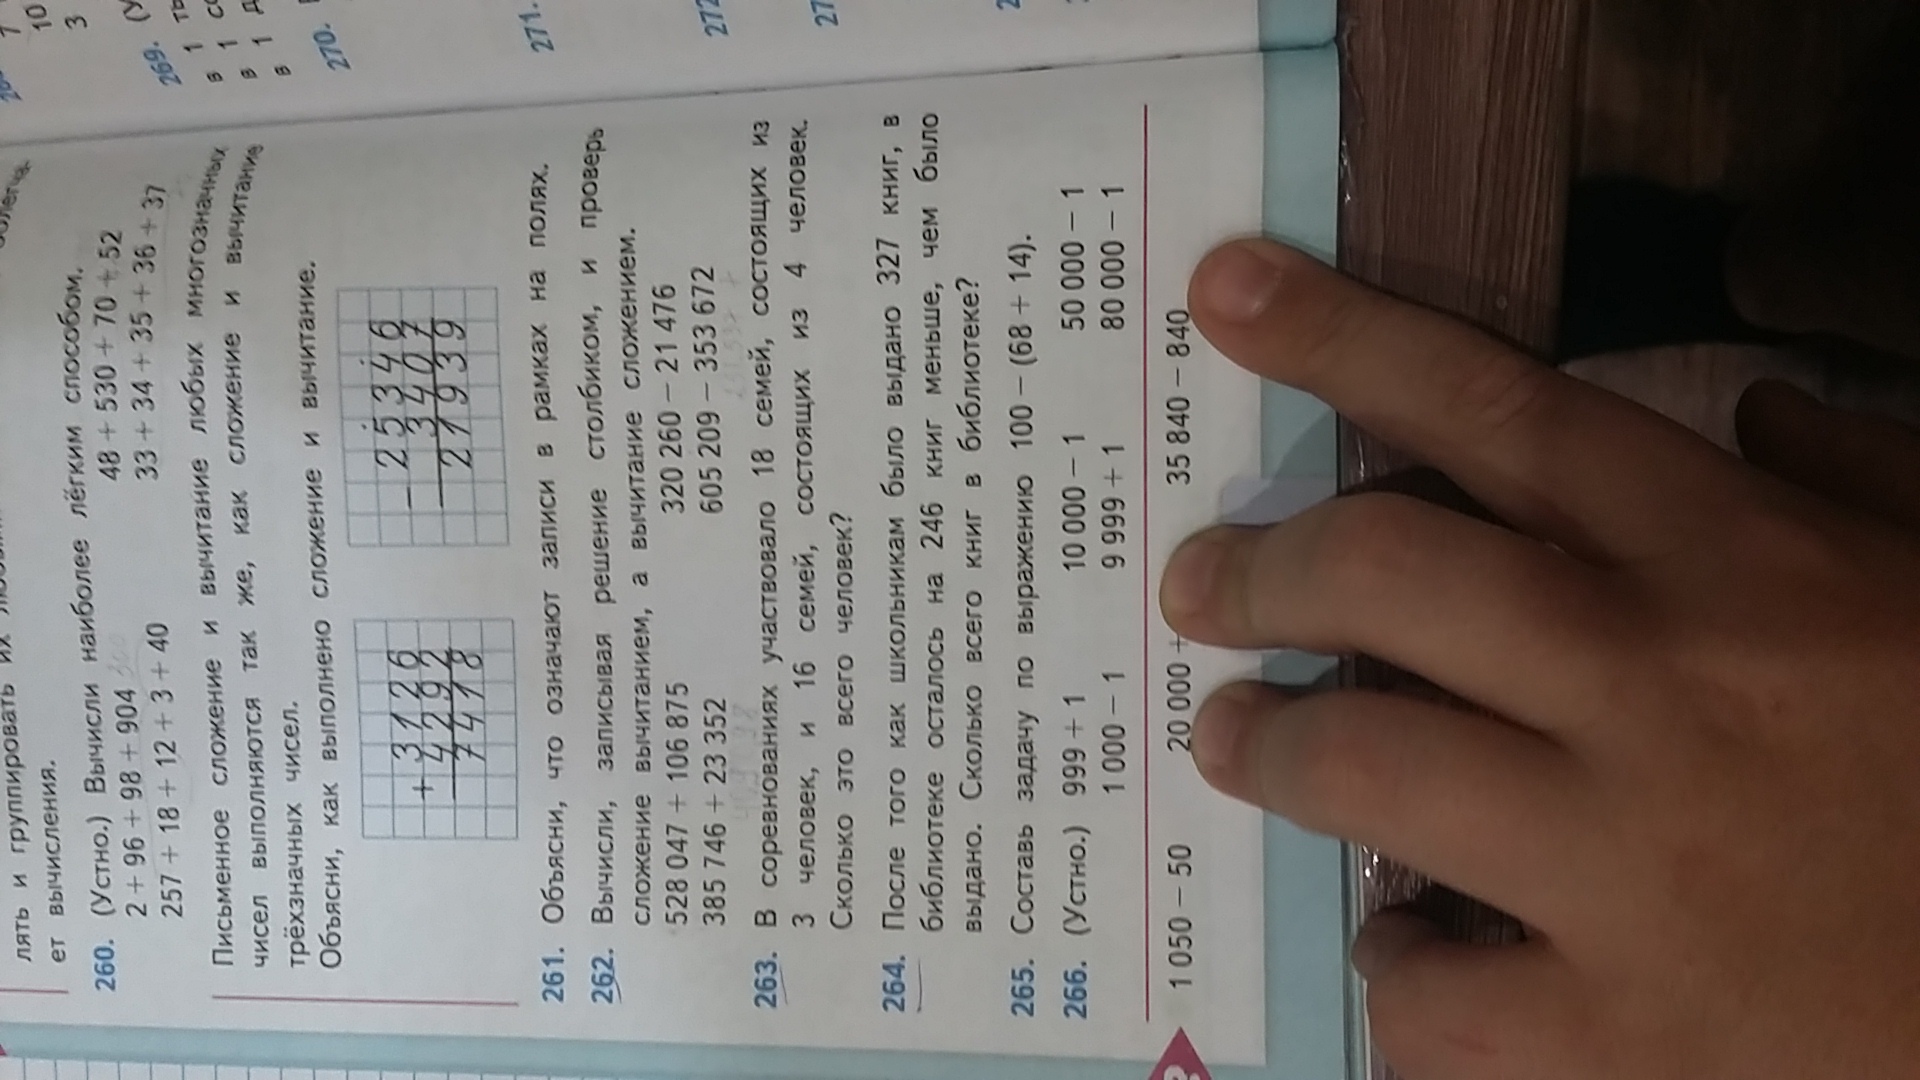 лять и группировать их
ет вычисления.
260. (Устно.) Вычисли наиболее лёгким способом.
2 + 96 + 98 + 904 48 + 530 + 70 + 52
257 + 18 + 12 + 3 + 40 33 + 34 + 35 + 36 + 37
Письменное сложение и вычитание любых многозначных
чисел выполняются так же, как сложение и вычитание
трёхзначных чисел.
Объясни, как выполнено сложение и вычитание.
+ 3126 − 25346
4292 3407
7418 21939
261. Объясни, что означают записи в рамках на полях.
262. Вычисли, записывая решение столбиком, и проверь
сложение вычитанием, а вычитание сложением.
528 047 + 106 875 320 260 − 21 476
385 746 + 23 352 605 209 − 353 672
263. В соревнованиях участвовало 18 семей, состоящих из
3 человек, и 16 семей, состоящих из 4 человек.
Сколько это всего человек?
264. После того как школьникам было выдано 327 книг, в
библиотеке осталось на 246 книг меньше, чем было
выдано. Сколько всего книг в библиотеке?
265. Составь задачу по выражению 100 − (68 + 14).
266. (Устно.) 999 + 1 10 000 − 1 50 000 − 1
1 000 − 1 9 999 + 1 80 000 − 1
? 1 050 − 50 20 000 + 35 840 − 840
10
3
269.
в 1
в 1
в 1
270.
271.
272
27